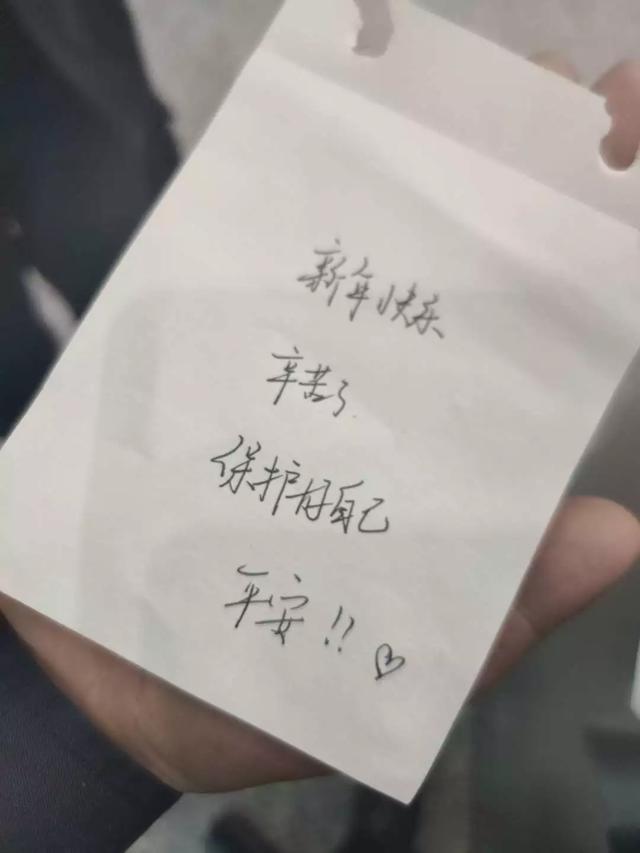 新年快乐
辛苦了
保护好自己
平安!!♡